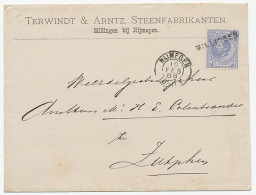 TERWINDT & ARNTZ, STEENFABRIKANTEN.
Millingen bij Nijmegen.
MILLINGEN
NIJMEGEN
19
FEB
Weledelgestrenge Heer
M. H. E. Colenbrander
te
Zutphen